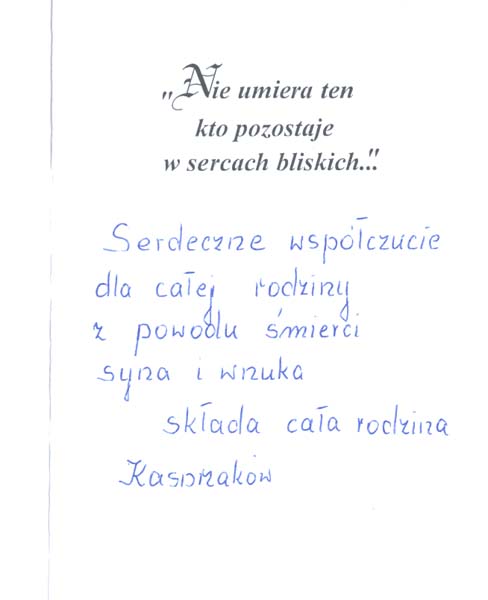 „Nie umiera ten
kto pozostaje
w sercach bliskich..."
Serdeczne współczucie
dla całej rodziny
z powodu śmierci
syna i wnuka
składa cała rodzina
Kasprzaków